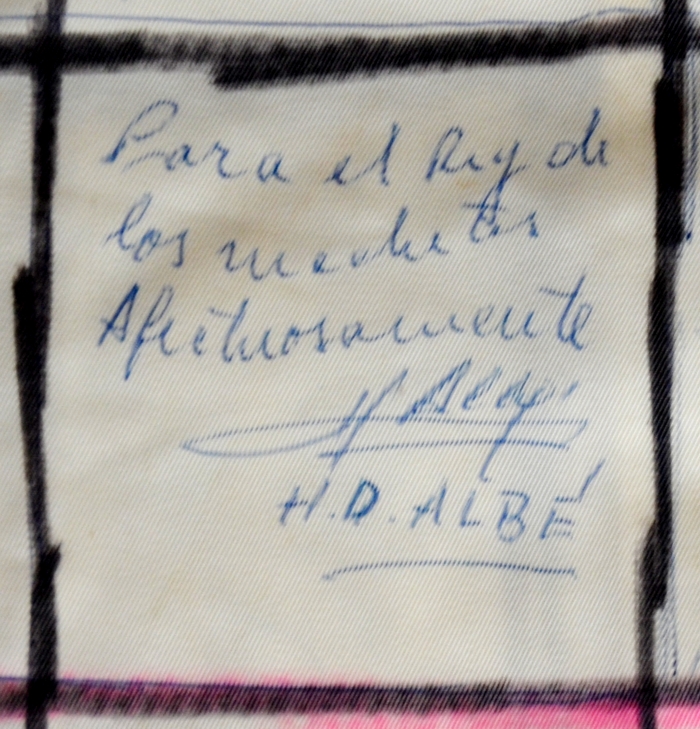 Para el Rey de
los machetes
Afectuosamente
H.D. ALBÉ